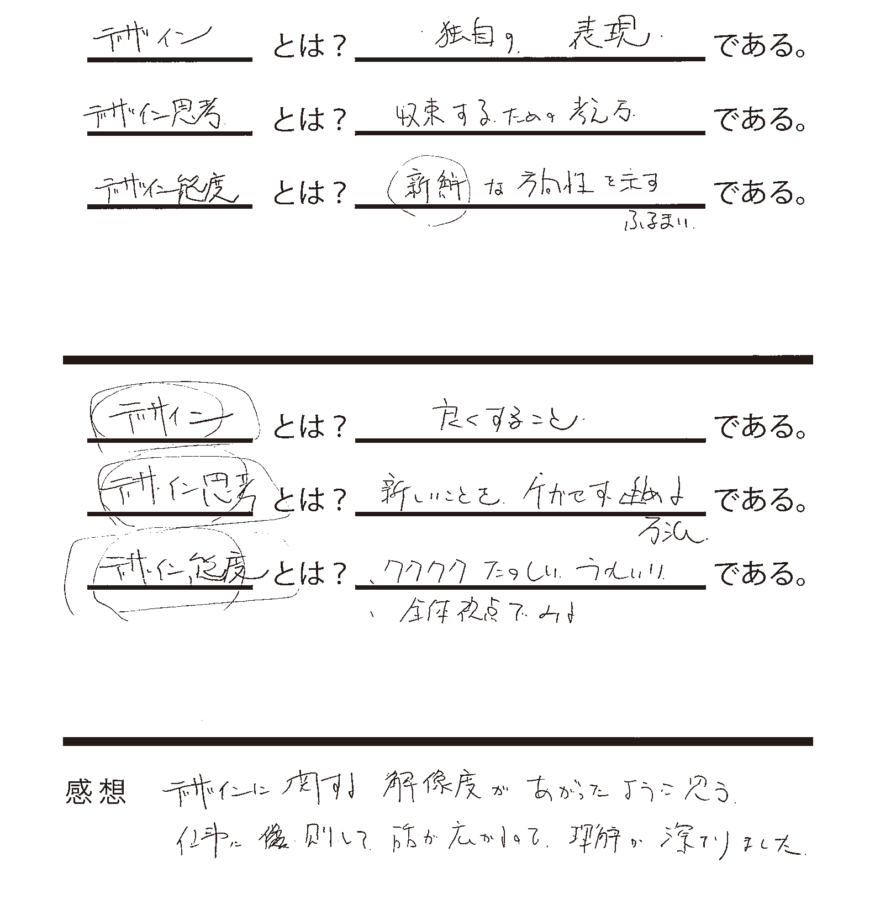 デザイン とは？ 独自の 表現 である。
デザイン思考 とは？ 収束するための考え方 である。
デザイン態度 とは？ 新鮮な方向性を示す である。
ふるまい
デザイン とは？ 良くすること である。
デザイン思考 とは？ 新しいことを 進める である。
方法
デザイン態度 とは？ 、ワクワク たのしい うれしい である。
、全体視点でみる
感想 デザインに関する解像度があがったように思う
仕事に 則して 話が広がって、理解が深まりました